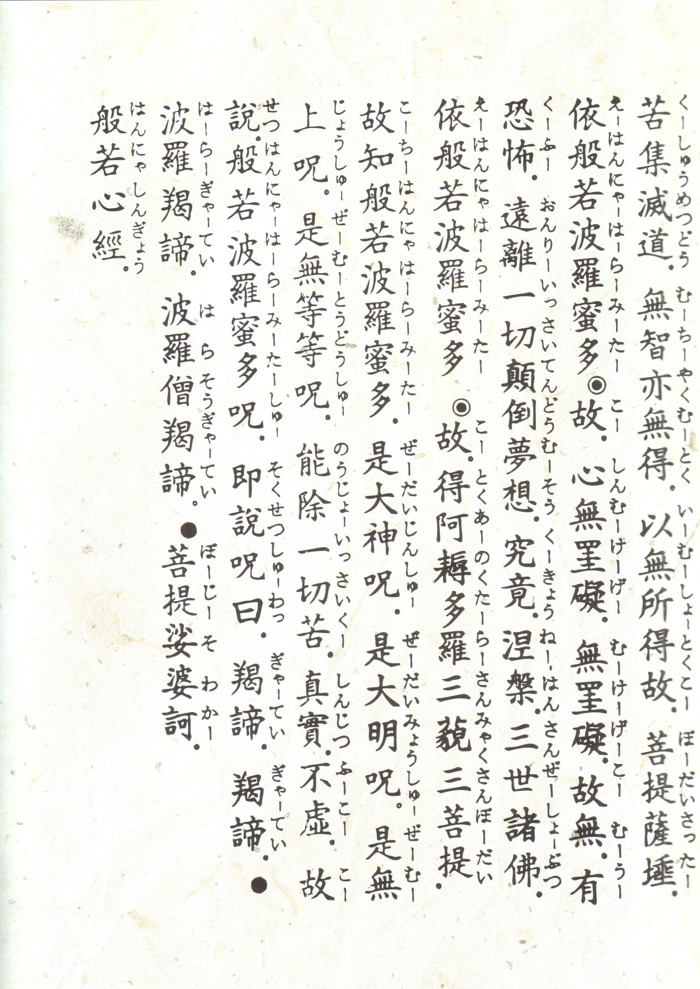 くーしゅうめつどう むーちーやくむーとく いーむーしょーとくこー ぼーだいさったー
苦集滅道。無智亦無得。以無所得故。菩提薩埵。
えーはんにゃーはーらーみーたー こー しんむーけーげー むーけーげーこー むーうー
依般若波羅蜜多◉故。心無罣礙。無罣礙。故無。有
くーふー おんりーいっさいてんどうむーそう くーきょうねーはん さんぜーしょーぶつ
恐怖。遠離一切顛倒夢想。究竟。涅槃。三世諸佛。
えーはんにゃ はーらーみーたー こー とくあーのくたーらーさんみゃくさんぼーだい
依般若波羅蜜多◉故。得阿耨多羅三藐三菩提。
こーちーはんにゃ はーらーみーたー ぜーだいじんしゅー ぜーだいみょうしゅーぜーむー
故知般若波羅蜜多。是大神呪。是大明呪。是無
じょうしゅーぜーむーとうどうしゅー のうじょーいっさいくー しんじつ ふーこー こー
上呪。是無等等呪。能除一切苦。真實。不虛。故
せつはんにゃーはーらーみーたーしゅー そくせつしゅーわっ ぎゃーてい ぎゃーてい
説。般若波羅蜜多呪。即説呪曰。羯諦。羯諦。●
はーらーぎゃーてい は らそうぎゃーてい ぼーじー そ わ かー
波羅羯諦。波羅僧羯諦。●菩提娑婆訶。
はんにゃしんぎょう
般若心經。